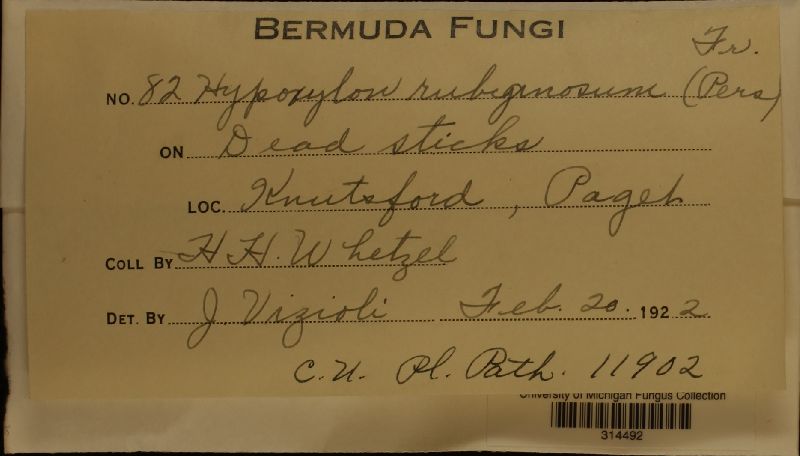 BERMUDA FUNGI
NO. 82 Hypoxylon rubiginosum (Pers) Fr.
ON Dead sticks
LOC. Knutsford, Paget
COLL BY H H. Whetzel
DET. BY J Vizioli Feb. 20. 1922.
C.U. Pl. Path. 11902
University of Michigan Fungus Collection
314492